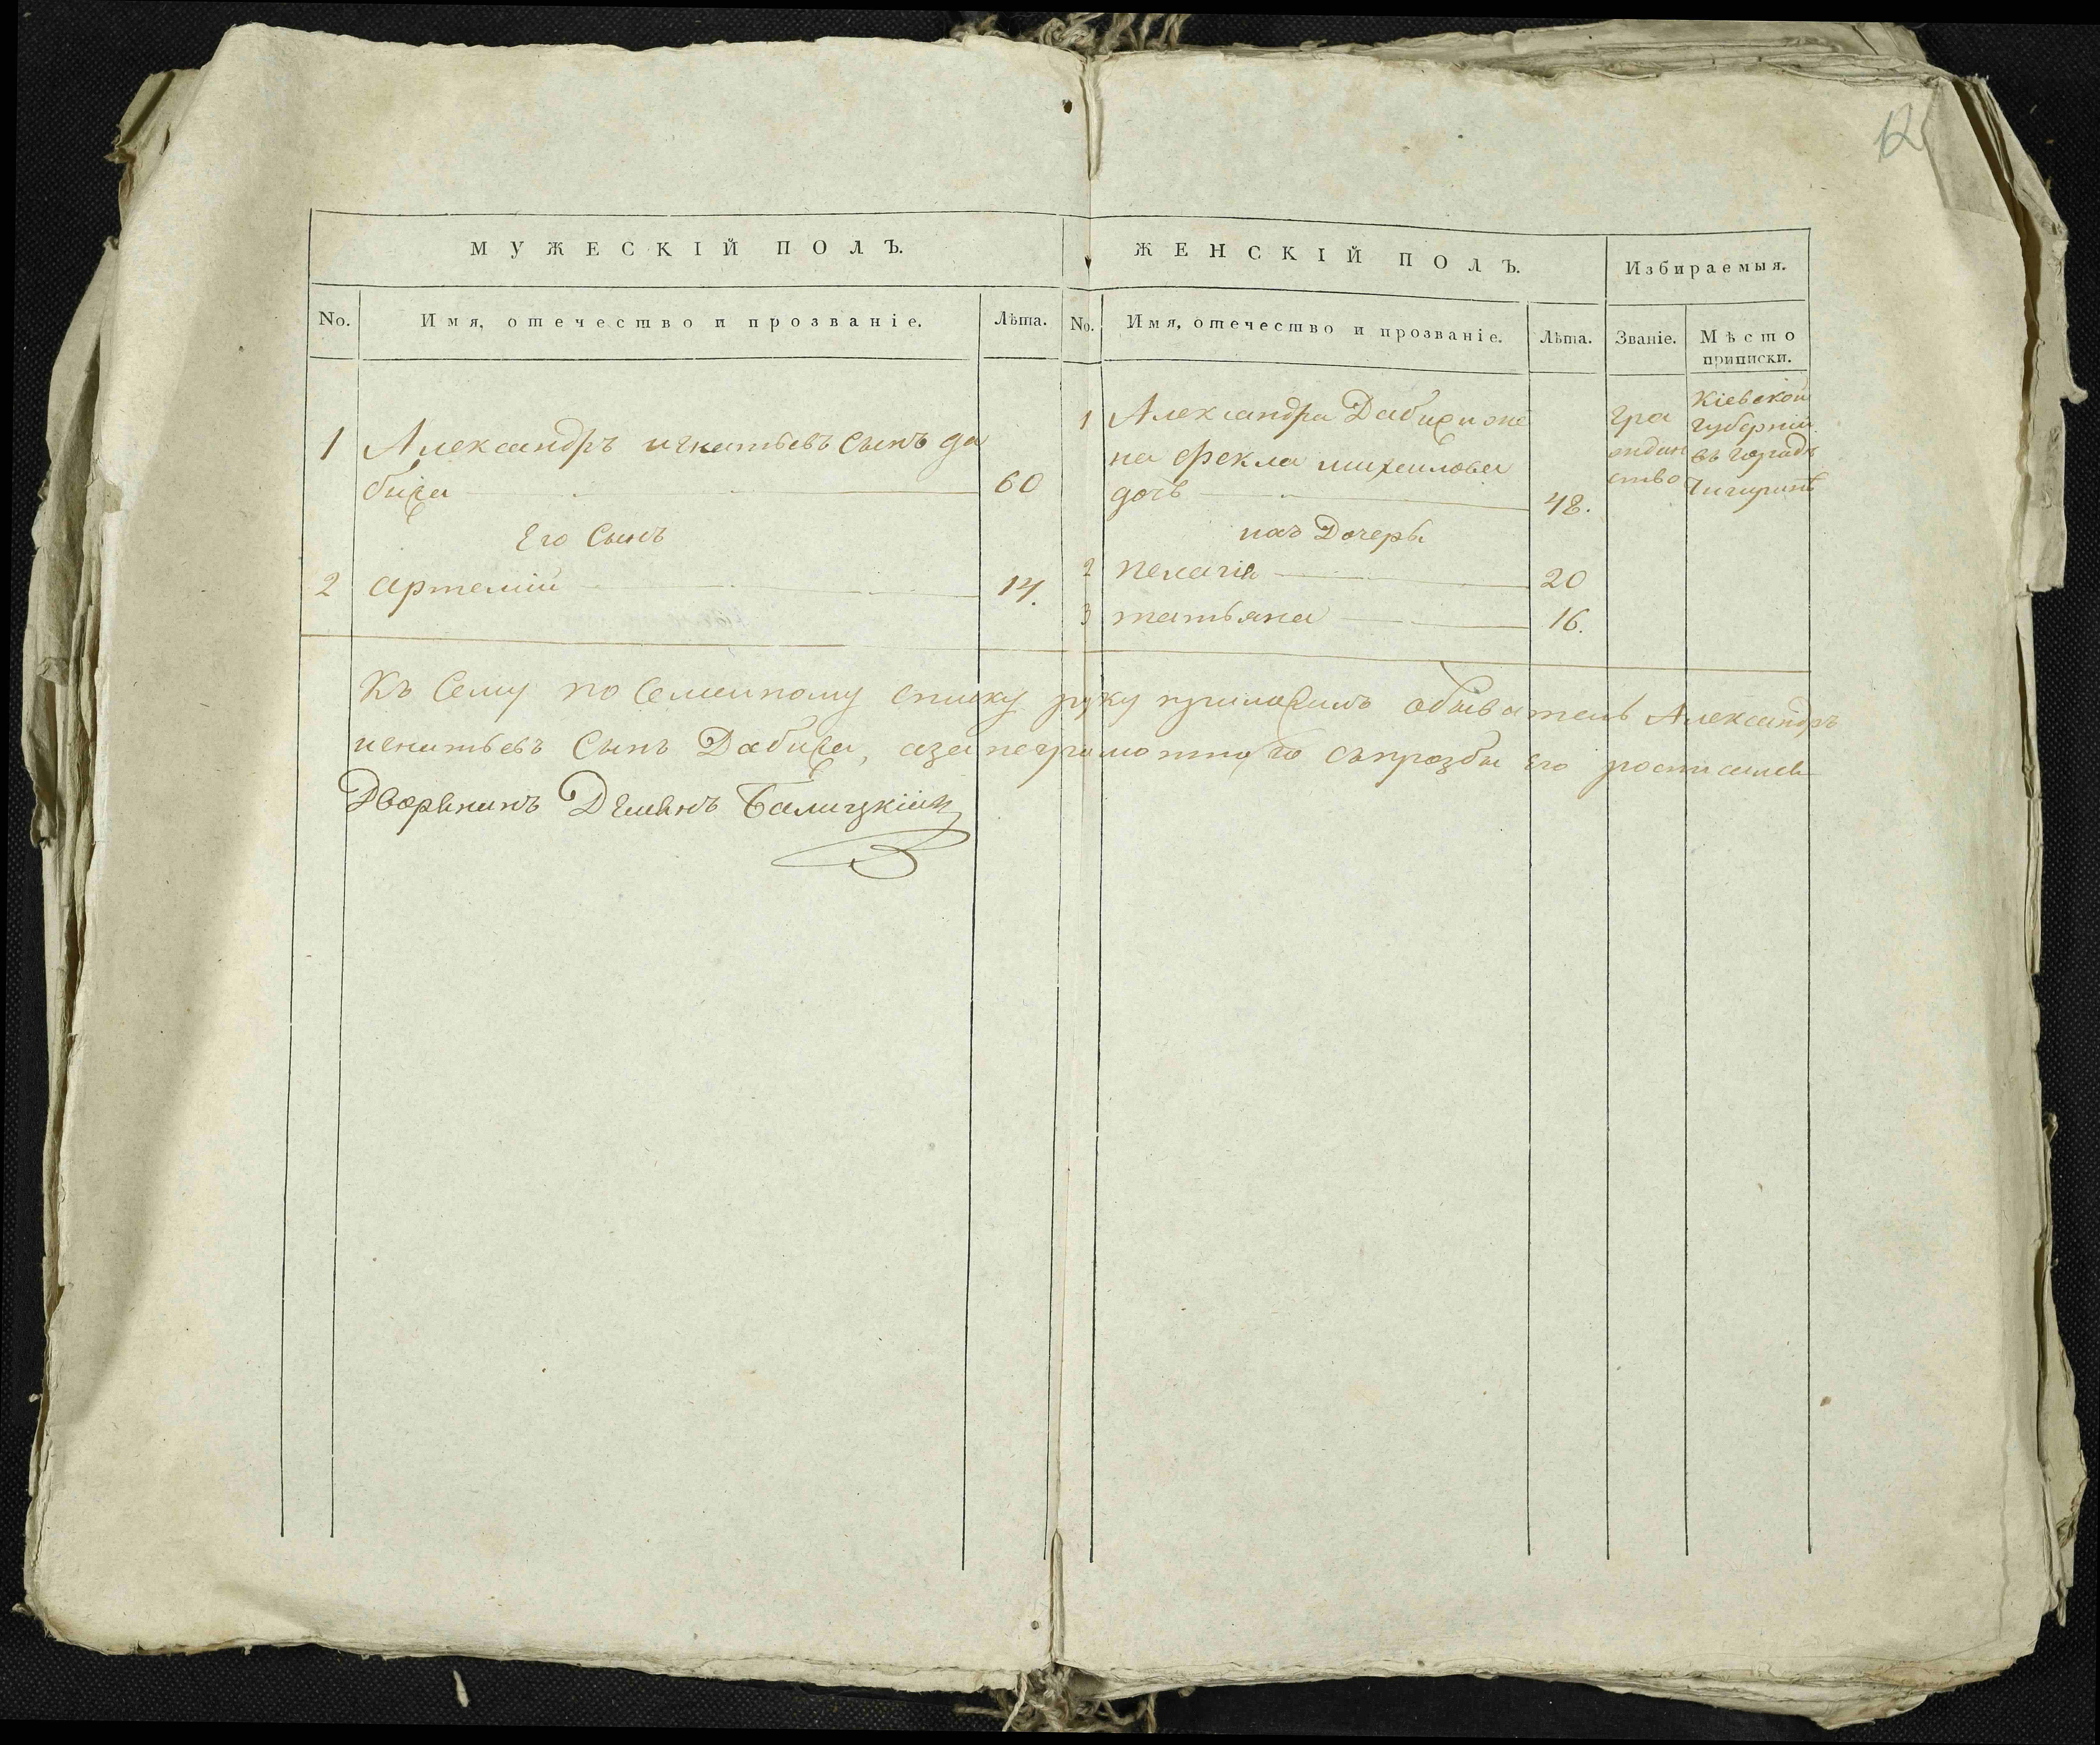 12
МУЖЕСКІЙ ПОЛЪ.
No. Имя, отечество и прозваніе. Лѣта.
1 Александръ игнатьевъ Сынъ да
бижа 60
Его Сынъ
2 артемій 14.
ЖЕНСКІЙ ПОЛЪ.
No. Имя, отечество и прозваніе. Лѣта.
1 Александра Дабижи же
на фекла михаилова
дочь 48.
ихъ Дочеры
2 пелагія 20
3 татьяна 16.
Избираемыя.
Званіе. Мѣсто
приписки.
Гра
ждан
ство
Кіевской
губерніи
въ городѣ
Чигиринѣ
Къ Сему по Семейному списку руку приложилъ обыватель Александръ
игнатьевъ Сынъ Дабижа, азанеграмотного съпрозбы Его росписался
Дворянинъ Демянъ Балицкіий